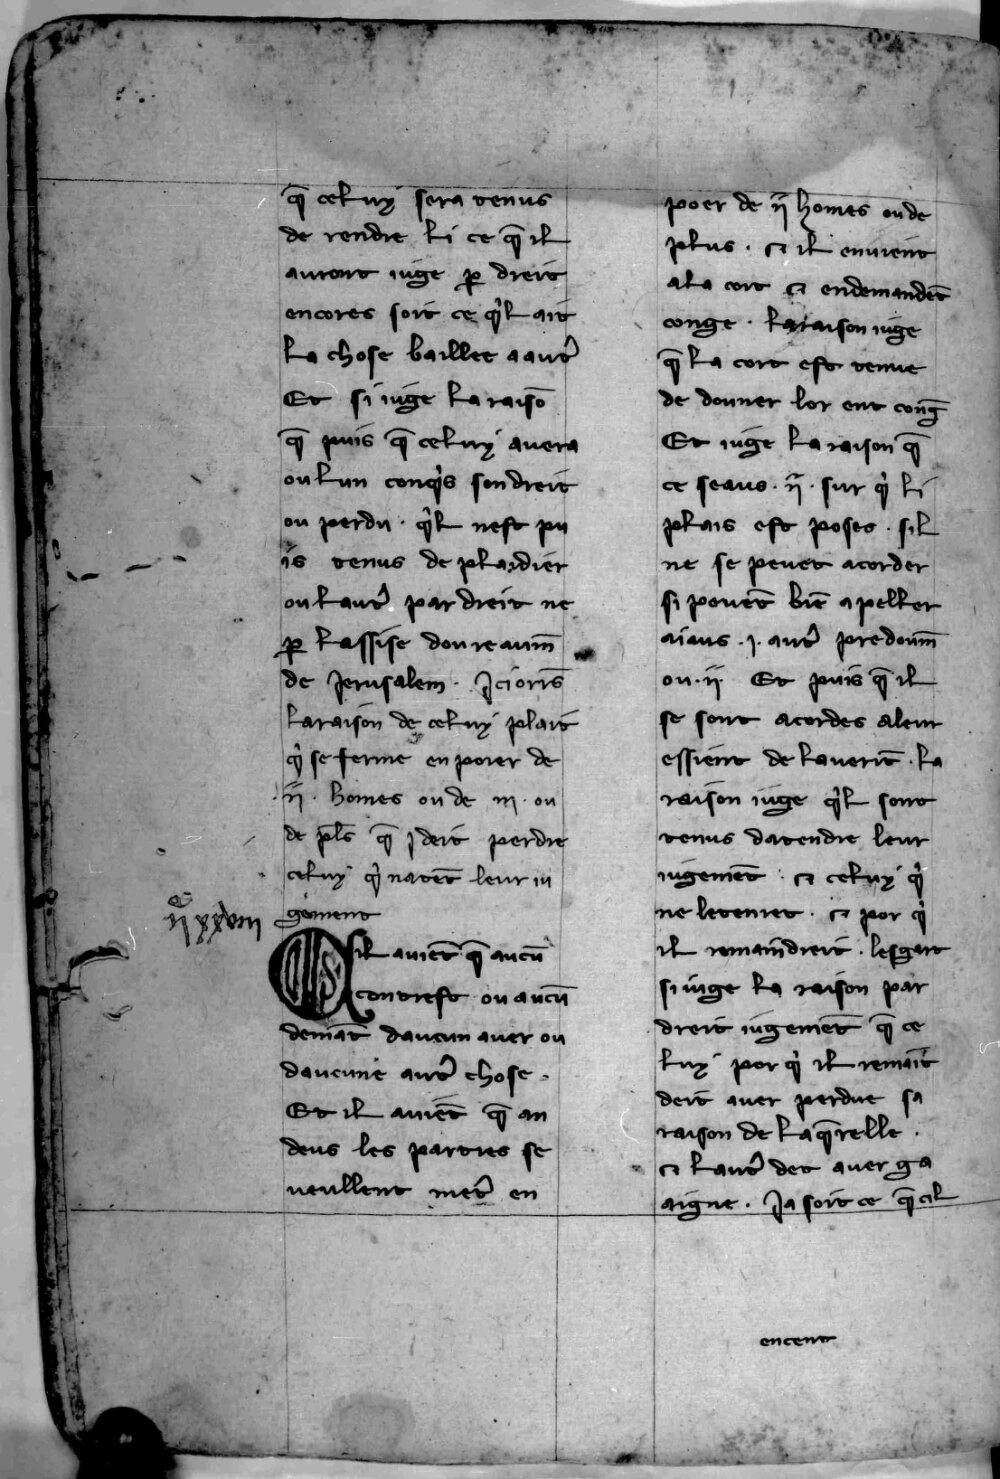 q̄ celuy sera tenus
de rendre li ce q̄ il
auront iuge ꝑ dreit
encores soit ce q̉l ait
la chose baillee a autr̉
Et si iuge la raisō
q̄ puis q̄ celuy auera
ou lun conq̉s son dreit
ou perdu · q̉l nest pu
is tenus de plaidier
ou lautr̉ par dreit ne
ꝑ lassise dou reaum̄
de Jerusalem · Jci orrēs
la raison de celuy plait
q̉ se ferme en poier de
·ij̄· homes ou de iij · ou
de pl̄s q̄ i deit perdre
celuy q̉ natēt leur iu
gement
ij xxxviij
Sil auiēt q̄ aucū
contrest ou aucū
demāt daucun auer ou
daucune autr̉ chose ·
Et il auiēt q̄ an
deus les parties se
ueullent metr̉ en
poer de ij̄ homes ou de
plus · ⁊ il enuient
a la cort ⁊ en demandēt
conge · la raison iuge
q̄ la cort est tenue
de donner lor ent conḡ
Et iuge la raison q̄
ce seaus · ij̄ · sur q̉ li
plais est poses · sil
ne se peuet acorder
si poueēt biē apeller
a iaus · j · autr̉ predoum̄
ou · ij · Et puis q̄ il
se sont acordes a leur
essient de lauerit̄ · la
raison iuge q̉l sont
tenus datendre leur
iugemēt · ⁊ celuy q̉
ne letenret · ⁊ por q̉
il remaindreit · lesgart
si iuge la raison par
dreit iugemēt q̄ ce
luy por q̉ il remain̄
dreit auer perdue sa
raison de la q̄relle ·
⁊ lautr̉ det auer ga
aigne · Ja soit ce q̄ cil
encent